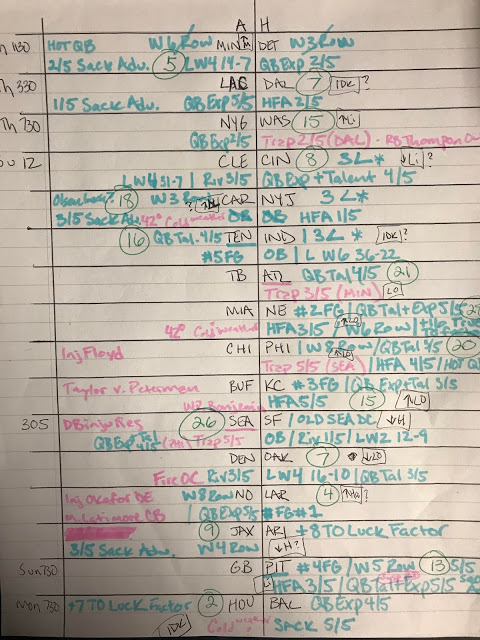 A H
1130 HOT QB W6 Row MIN DET W3 Row
2/5 Sack Adv. 5 LW4 14-7 QB Exp 2/5
Th 330 LAC DAL 7 IDK ?
1/5 Sack Adv. QB Exp 5/5 HFA 2/5
Th 730 NYG WAS 15
QB Exp 2/5 Trap 2/5 (DAL) - RB Thompson Out
12 CLE CIN 8 3L* ?
LW4 31-7 | Riv 3/5 QB Exp + Talent 4/5
18 W3 CAR NYJ 3L*
3/5 Sack Adv. 42° Cold weather OB OB HFA 1/5
16 QB Tal. 4/5 TEN IND | 3L* IDK ?
#5 FG OB | L W6 36-22
TB ATL QB Tal 4/5 21
Trap 3/5 (MIN) LO
MIA NE #2 FG | QB Tal + Exp 5/5
42° Cold weather HFA 3/5 | W6 Row |
Inj Floyd CHI PHI | W8 Row | QB Tal 4/5 20
Trap 5/5 (SEA) | HFA 4/5 | HOT QB
Taylor v. Peterman BUF KC #3 FG | QB Exp + Tal 3/5
WR Benjamin HFA 5/5 15 ↑LO
305 DB injuries 26 SEA SF | OLD SEA DC ↓H
QB Exp 4/5 (PHI) Trap 5/5 OB | Riv 1/5 | LW2 12-9
DEN OAK 7 ↓LO
Fire OC Riv 3/5 LW4 16-10 | QB Tal 3/5
Inj Okafor DE W8 Row NO LAR 4 ?
M. Latimore CB | QB Exp 5/5 #FG #1
9 JAX ARI +8 TO Luck Factor
3/5 Sack Adv. W4 Row ↓H?
Sun 730 GB PIT #4 FG | W5 Row 13 5/5
HFA 3/5 | QB Tal + Exp 5/5
Mon 730 +7 TO Luck Factor 2 HOU BAL QB Exp 4/5
IDK Cold weather SACK 5/5